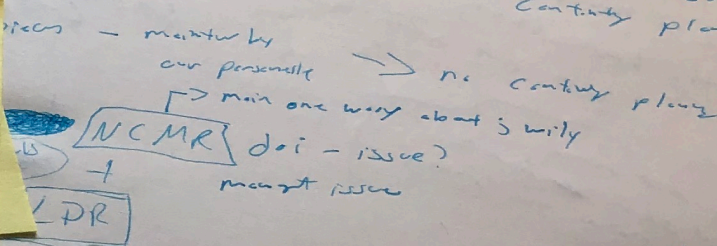 Continty pla
– maintur by
our personelle
no Continty plang
main one worry about is
NCMR doi – issue?
+ mangt issue
LDR